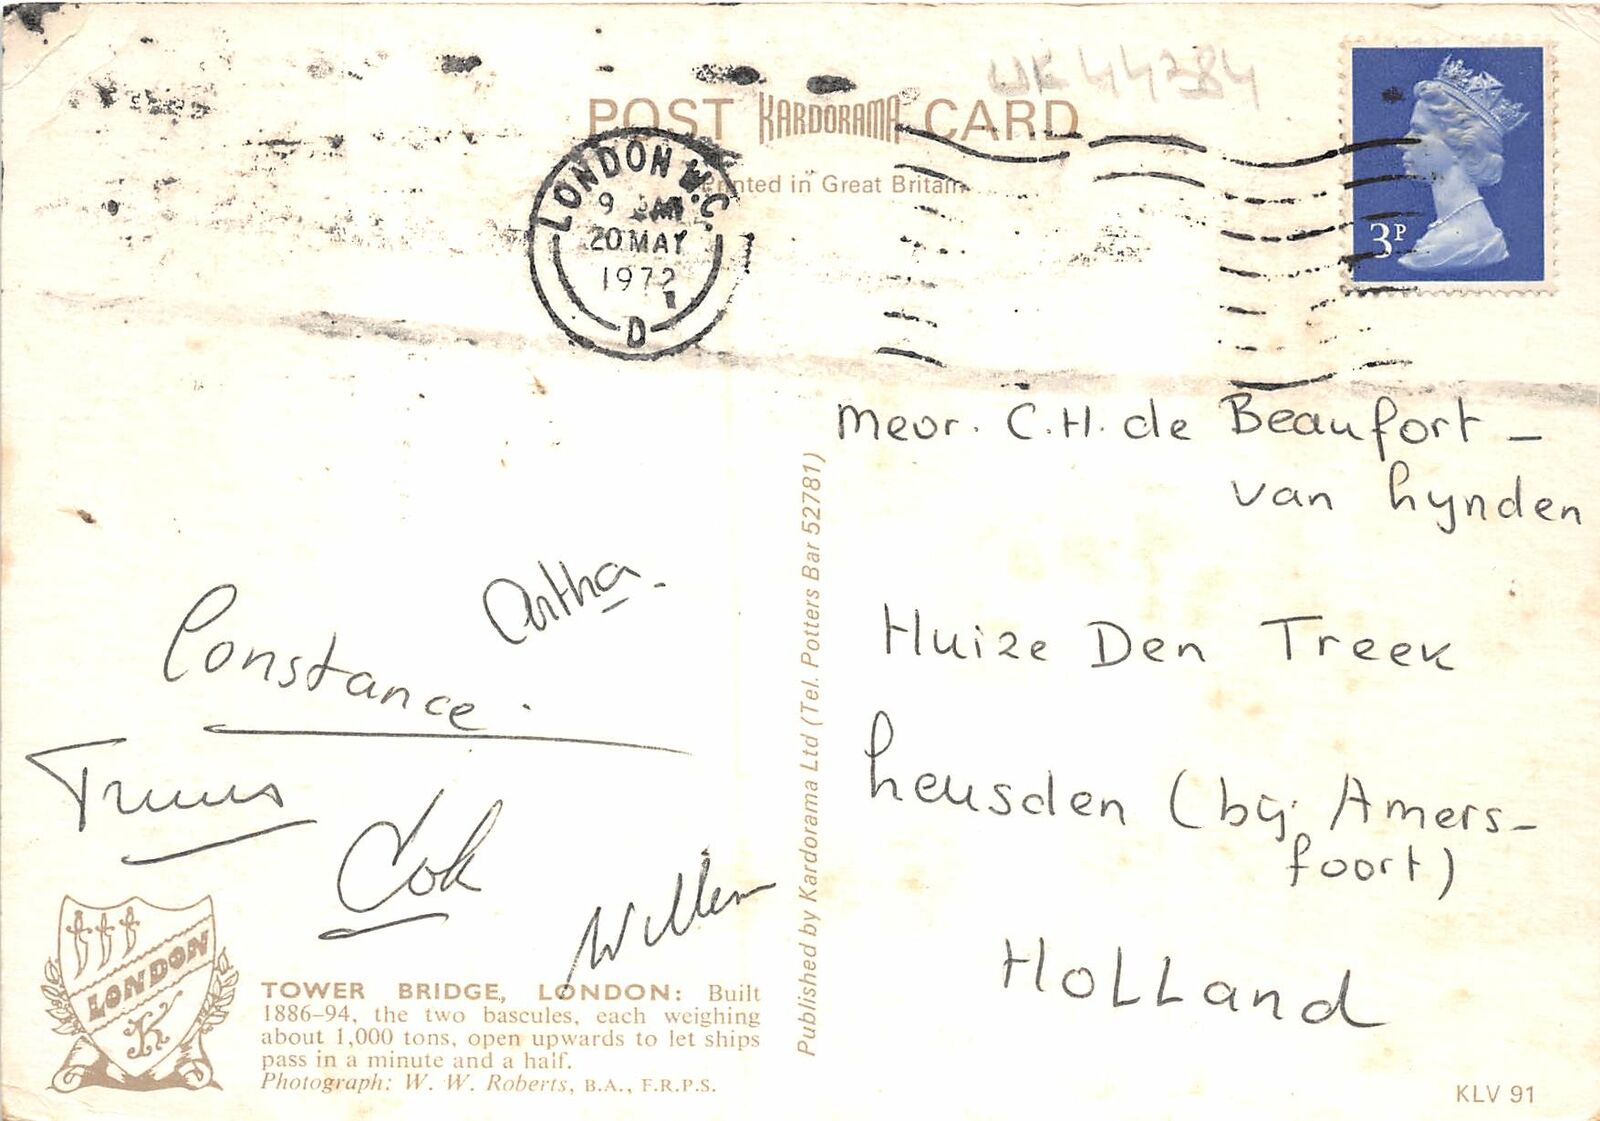 WK 44384
POST KARDORAMA CARD
Printed in Great Britain
LONDON W.C.
9
20 MAY
1972
D
3P
Mevr. C.H. de Beaufort -
van Lynden
Huize Den Treek
Leusden (bij Amers-
foort)
HOLLand
Artha.
Constance.
Truus
Cok
Willem
LONDON
K
TOWER BRIDGE, LONDON: Built
1886–94, the two bascules, each weighing
about 1,000 tons, open upwards to let ships
pass in a minute and a half.
Photograph: W. W. Roberts, B.A., F.R.P.S.
Published by Kardorama Ltd (Tel. Potters Bar 52781)
KLV 91